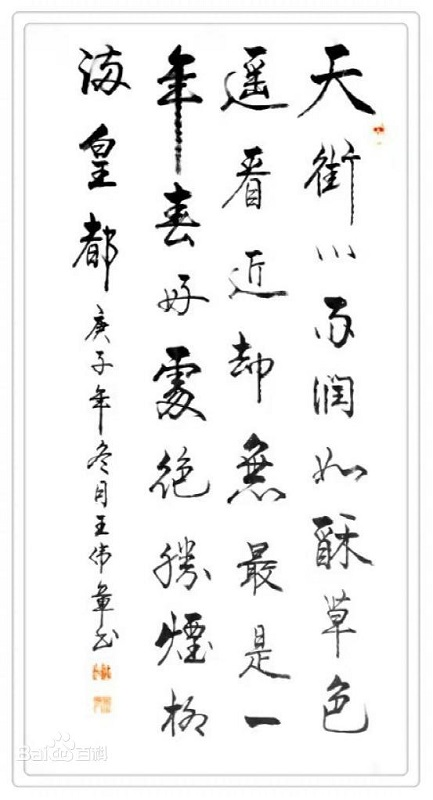 天街小雨润如酥草色
遥看近却無最是一
年春好處絶勝煙柳
满皇都
庚子年冬月王伟章书
Baidu百科